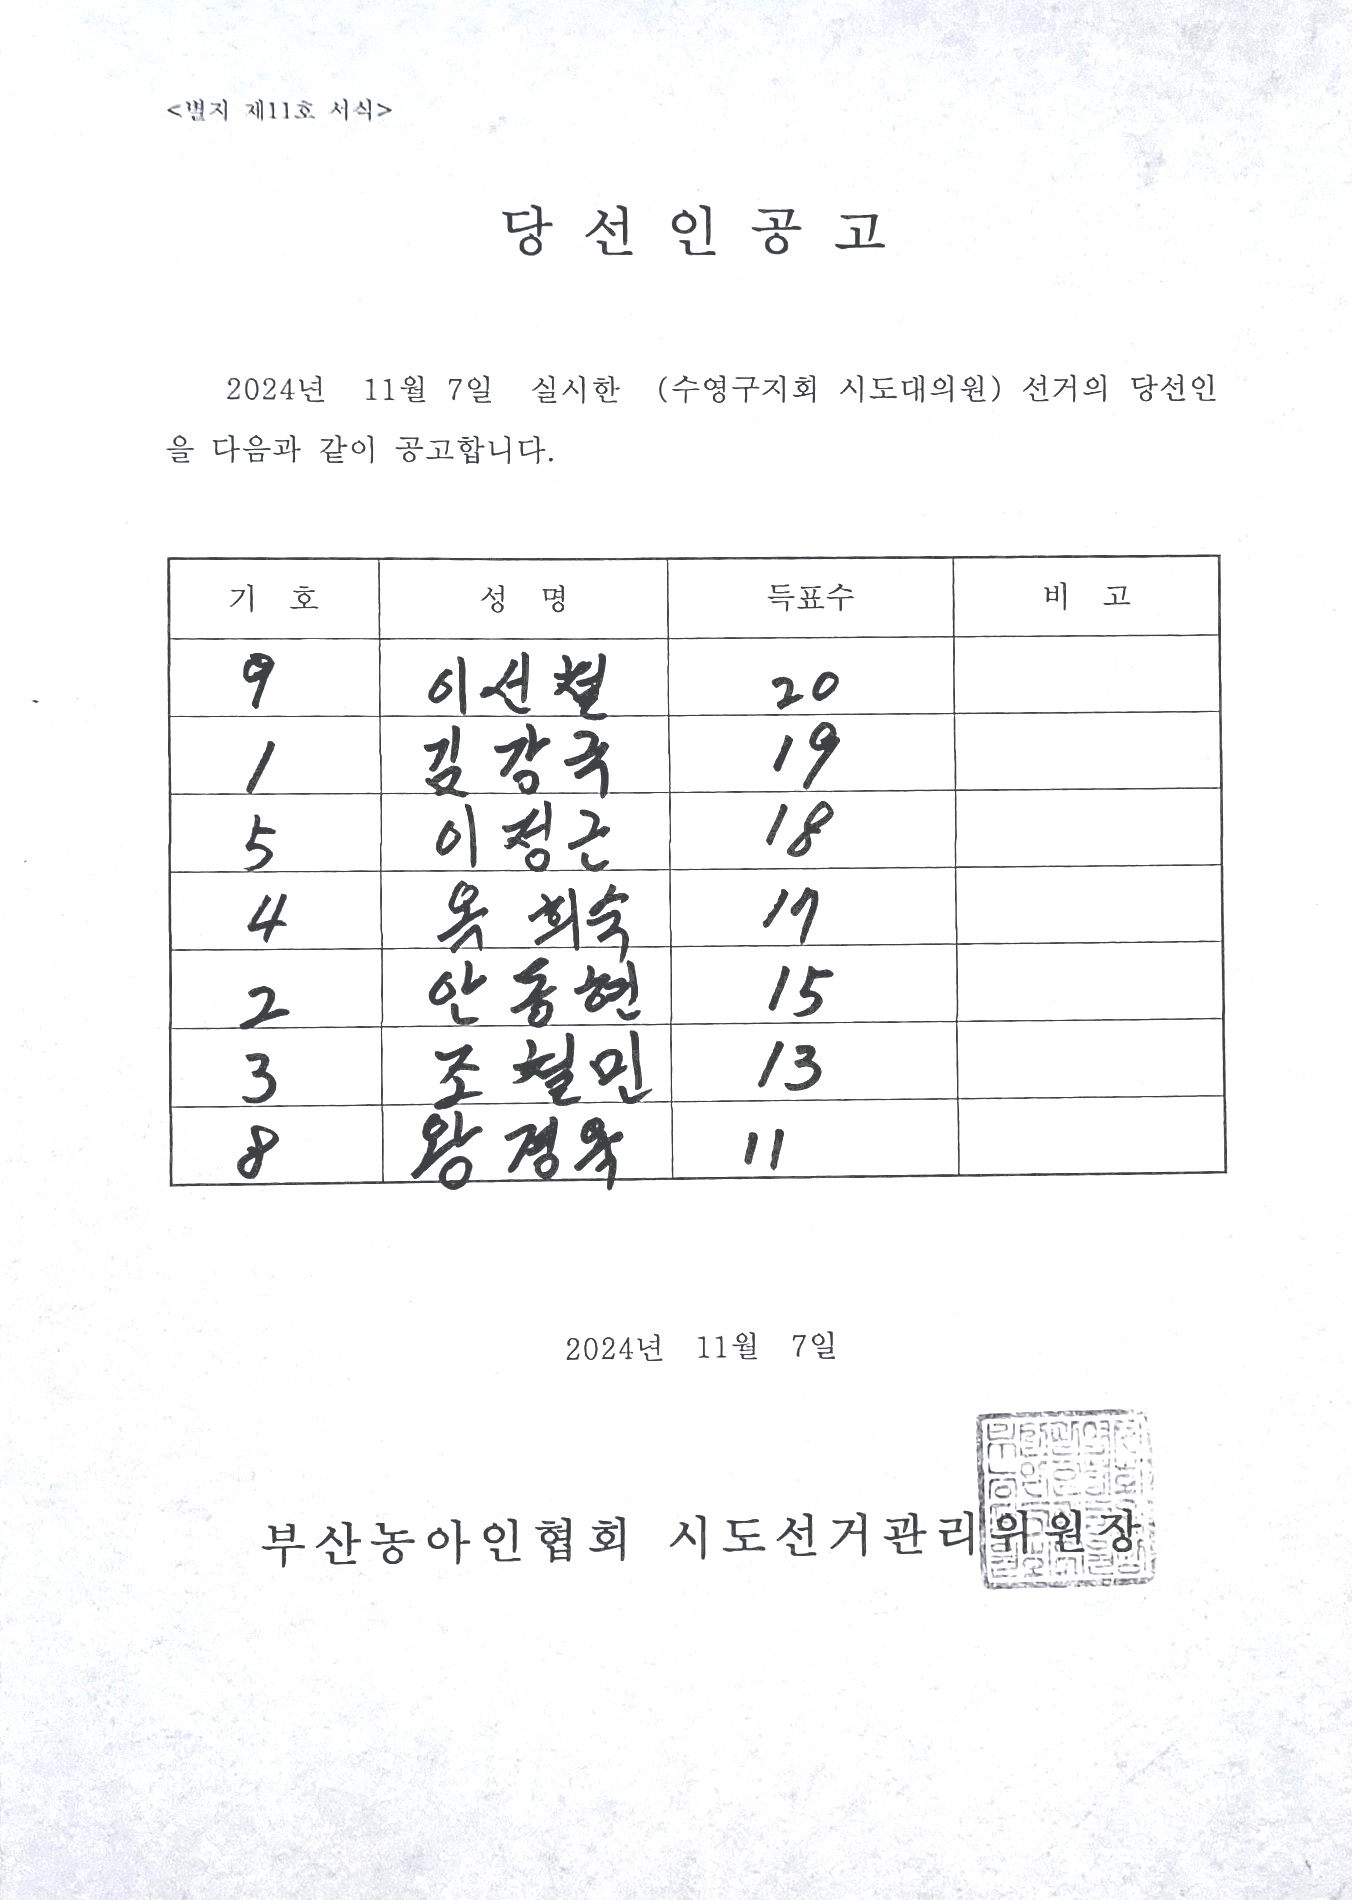 <별지 제11호 서식>
당 선 인 공 고
2024년 11월 7일 실시한 (수영구지회 시도대의원) 선거의 당선인
을 다음과 같이 공고합니다.
기 호 성 명 득표수 비 고
9 이선철 20
1 김강국 19
5 이정근 18
4 옥희숙 17
2 안동현 15
3 조철민 13
8 왕경욱 11
2024년 11월 7일
부산농아인협회 시도선거관리위원장